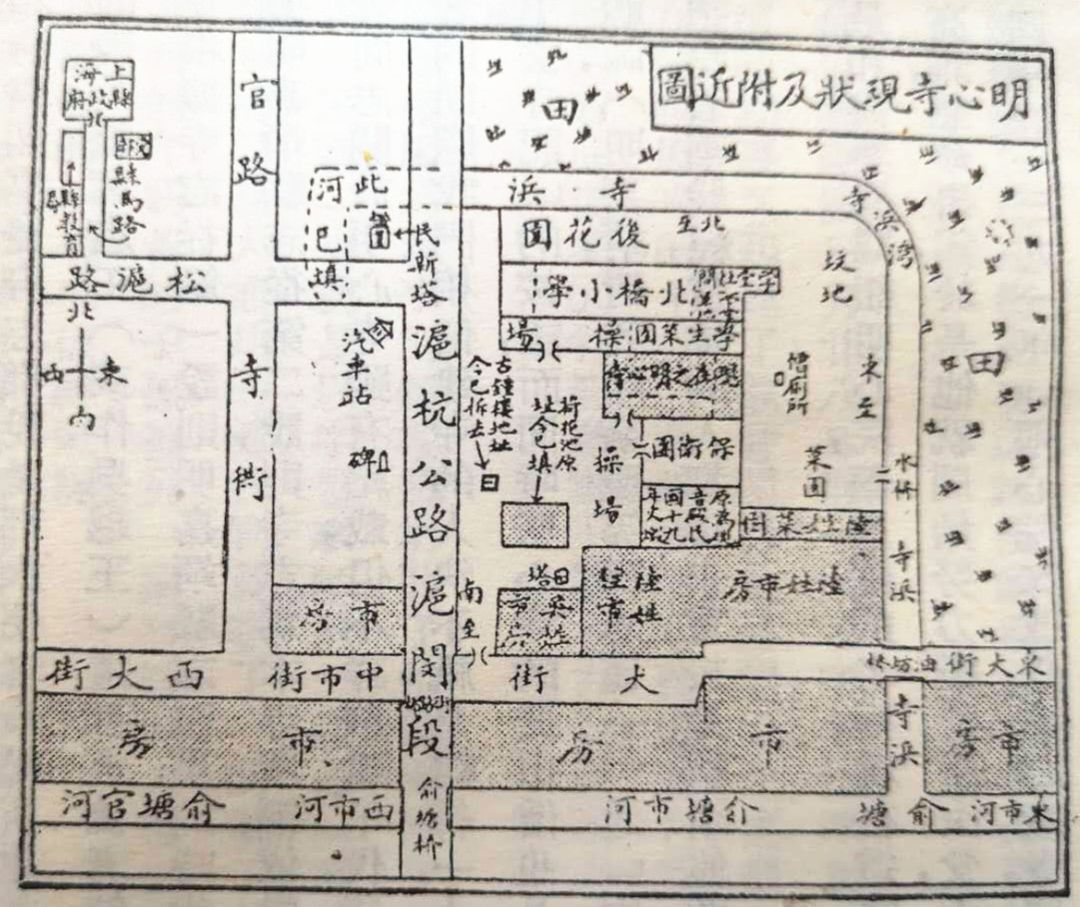 明心寺現狀及附近圖
上海縣政府
縣馬路
上縣教育局
官路
松滬路
北
東
西
南
寺街
此河已填
民斯塔
汽車站
碑
滬杭公路滬閔段
寺浜
寺浜灣
田
田
北至
後花園
北橋小學
學生菜園
操場
現在之明心寺
保衛團
操場
古鐘樓地址今已拆去
荷花池原址今已填
塔
南至
吳姓市房
陸姓住市
陸姓市房
陸姓菜園
菜園
坟地
東至
水橋
寺浜
市房
西大街
中市街
大街
東大街
市房
市房
寺浜
市房
俞塘官河
西市河
俞塘橋
俞塘
東市河